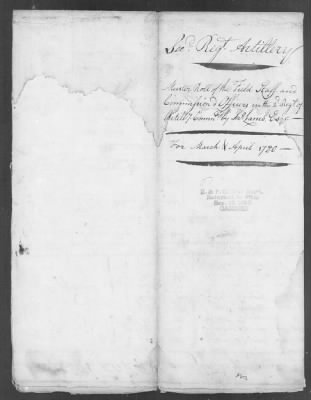 Sec.d Regt Artillery
Muster Role of the Field Staff and
Commission'd Officers in the 2d Regt of
Artilly Comm'd by Jn.o Lamb Esqr
For March & April 1780 —